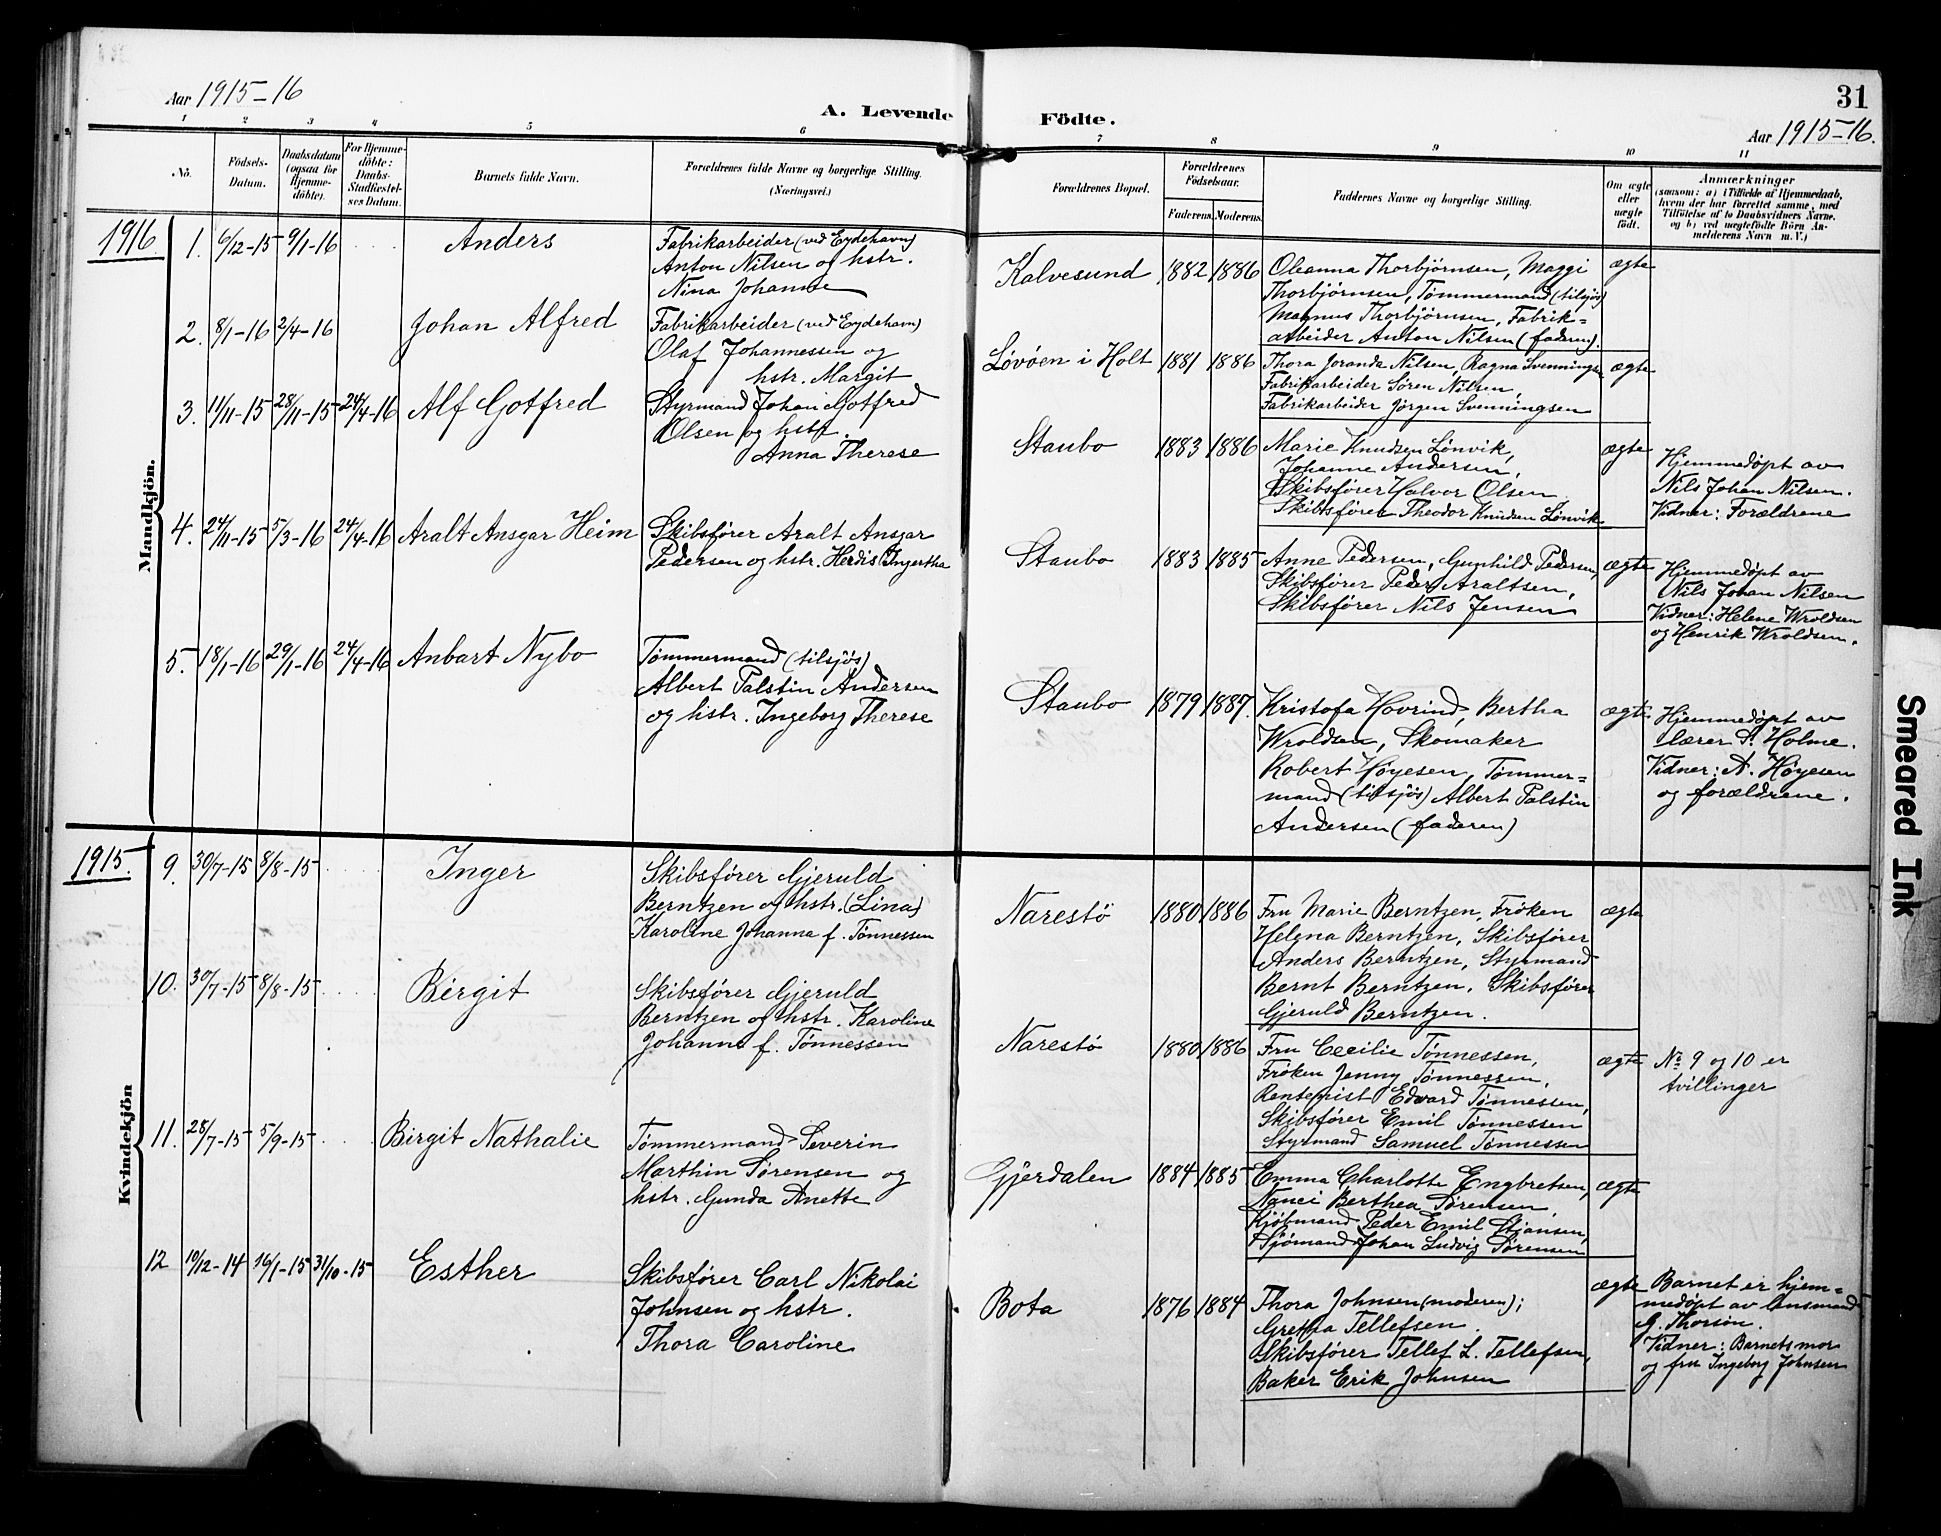 Aar 1915-16
A. Levende Födte.
31
Aar 1915-16.
1 2 3 4 5 6 7 8 9 10 11
No.
Födsels-
Datum.
Daabsdatum
(ogsaa for
Hjemme-
döbte).
For Hjemme-
döbte:
Daabs-
Stadfæstel-
ses Datum.
Barnets fulde Navn.
Forældrenes fulde Navne og borgerlige Stilling.
(Næringsvei.)
Forældrenes Bopæl.
Forældrenes
Födselsaar.
Faderens. Moderens.
Faddernes Navne og borgerlige Stilling.
Om ægte
eller
uægte
födt.
Anmærkninger
(saasom: a) i Tilfælde af Hjemmedaab,
hvem der har forrettet samme, med
Tilföielse af to Daabsvidners Navne,
og b) ved uægtefödte Börn An-
melderens Navn m. V.)
Mandkjön.
1916
1. 6/12-15 9/1-16 Anders
Fabrikarbeider (ved Eydehavn)
Anton Nilsen og hstr.
Nina Johanne
Kalvesund 1882 1886
Oleanna Thorbjørnsen, Maggi
Thorbjörnsen, Tømmermand (tilsjøs)
Magnus Thorbjörnsen, Fabrik=
arbeider Anton Nilsen (faderen).
ægte
2. 8/1-16 2/4-16 Johan Alfred
Fabrikarbeider (ved Eydehavn)
Olaf Johannessen og
hstr. Margit
Løvøen i Holt 1881 1886
Thora Joranda Nilsen, Ragna Svenningsen
Fabrikarbeider Sören Nilsen
Fabrikarbeider Jörgen Svenningsen
ægte
3. 11/11-15 28/11-15 24/4-16 Alf Gotfred
Styrmand Johan Gotfred
Olsen og hstr.
Anna Therese
Staubo 1883 1886
Marie Knudsen Lønvik,
Johanne Andersen,
Skibsfører Halvor Olsen
Skibsfører Theodor Knudsen Lønvik
ægte
Hjemmedøpt av
Nils Johan Nilsen.
Vidner: Forældrene
4. 24/11-15 5/3-16 24/4-16 Aralt Ansgar Heim
Skibsfører Aralt Ansgar
Pedersen og hstr. Herdis Ingertha
Staubo 1883 1885
Anne Pedersen, Gunhild Pedersen,
Skibsfører Peder Araltsen,
Skibsfører Nils Jensen
ægte
Hjemmedøpt av
Nils Johan Nilsen
Vidner: Helene Wroldsen
og Henrik Wroldsen.
5. 18/1-16 29/1-16 24/4-16 Anbart Nybo
Tømmermand (tilsjøs)
Albert Palstin Andersen
og hstr. Ingeborg Therese
Staubo 1879 1887.
Kristofa Hovrind, Bertha
Wroldsen, Skomaker
Robert Høyesen, Tømmer=
mand (tilsjøs) Albert Palstin
Andersen (faderen)
ægte
Hjemmedøpt av
lærer P. Holme.
Vidner: A. Høyesen
og forældrene.
Kvindekjön
1915.
9. 30/7-15 8/8-15 Inger
Skibsfører Gjeruld
Berntzen og hstr. (Lina)
Karoline Johanna f. Tønnessen
Narestø 1880 1886
Fru Marie Berntzen, Frøken
Helena Berntzen, Skibsfører
Anders Berntzen, Styrmand
Bernt Berntzen, Skibsfører
Gjeruld Berntzen.
ægte
10. 30/7-15 8/8-15 Birgit
Skibsfører Gjeruld
Berntzen og hstr. Karoline
Johanne f. Tønnessen
Narestø 1880 1886
Fru Cecilie Tønnessen,
Frøken Jenny Tønnessen,
Rentenist Edvard Tønnessen,
Skibsfører Emil Tønnessen
Styrmand Samuel Tønnessen
ægte
No 9 og 10 er
tvillinger
11. 28/7-15 5/9-15 Birgit Nathalie
Tømmermand Severin
Marthin Sørensen og
hstr. Gunda Anette
Gjerdalen 1884 1885
Emma Charlotte Engbretsen,
Nanci Berthea Sørensen,
Kjøbmand Peder Emil Stiansen,
Sjømand Johan Ludvig Sørensen
ægte
12 19/12-14 16/1-15 31/10-15 Esther
Skibsfører Carl Nikolai
Johnsen og hstr.
Thora Caroline
Bota 1876 1884
Thora Johnsen (moderen);
Gretha Tellefsen.
Skibsfører Tellef L. Tellefsen,
Baker Erik Johnsen
ægte
Barnet er hjem=
medøpt av lensmand
G. Thorson.
Vidner: Barnets mor
og fru Ingeborg Johnsen
Smeared Ink